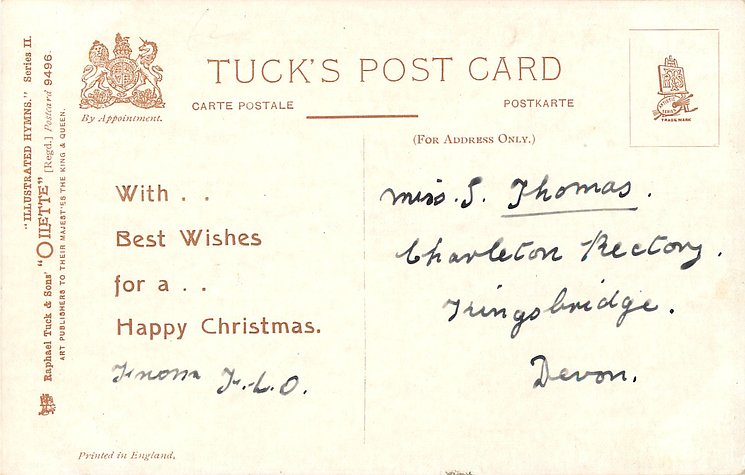 "ILLUSTRATED HYMNS." Series II.
Raphael Tuck & Sons' "OILETTE" [Regd.] Postcard 9496.
ART PUBLISHERS TO THEIR MAJESTIES THE KING & QUEEN.
By Appointment.
TUCK'S POST CARD
CARTE POSTALE
POSTKARTE
(FOR ADDRESS ONLY.)
TRADE MARK
With . .
Best Wishes
for a . .
Happy Christmas.
F.L.O.
Miss. S. Thomas.
Charleton Rectory.
Kingsbridge.
Devon.
Printed in England.